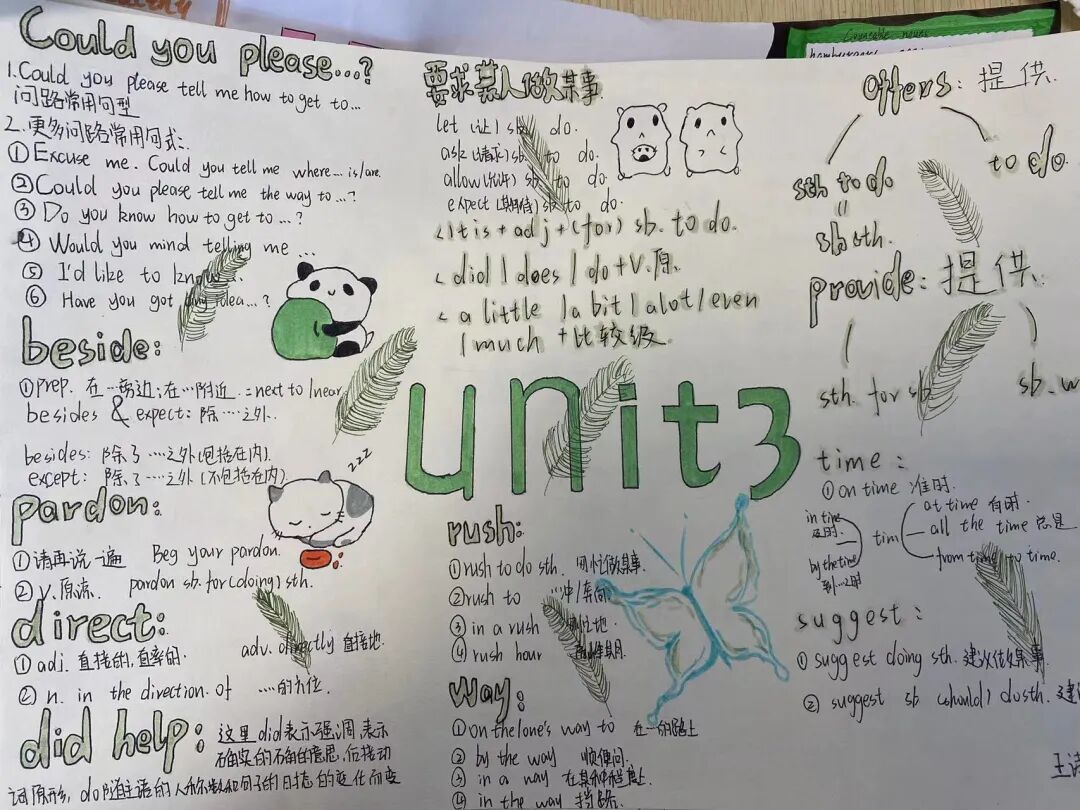 Could you please...?
1. Could you please tell me how to get to...
问路常用句型
2. 更多问路常用句式:
① Excuse me. Could you tell me where... is/are.
② Could you please tell me the way to...?
③ Do you know how to get to...?
④ Would you mind telling me ...
⑤ I'd like to know...
⑥ Have you got any idea...?
beside:
① prep. 在…旁边;在…附近 = next to/near
besides & expect: 除……之外.
besides: 除了……之外(包括在内).
except: 除了……之外(不包括在内)
pardon:
① 请再说一遍 Beg your pardon.
② v.原谅. pardon sb. for (doing) sth.
zzz
direct:
① adj. 直接的,直率的. adv. directly 直接地.
② n. in the direction of ……的方位.
did help: 这里did表示强调,表示
的确的意思,后接动
词原形, do随主语的人称数和句子的时态的变化而变
要求某人做某事.
let (让) sb do.
ask (请求) sb to do.
allow (允许) sb to do
expect (期待) sb to do.
<It is + adj + (for) sb. to do.
< did / does / do + V.原.
< a little / a bit / a lot / even
/ much + 比较级.
unit3
rush:
① rush to do sth. 匆忙做某事.
② rush to 冲/奔向
③ in a rush
④ rush hour
way:
① on the/one's way to 在…的路上
② by the way 顺便问.
③ in a way 在某种程度上
④ in the way 挡路.
Countable nouns
hamburgers
offers: 提供
sth to do
to do
=
sb sth.
provide: 提供.
sth. for sb
sb. w
time:
① on time 准时.
in time 及时.
by the time 到…时
tim
at time 有时.
all the time 总是
from time to time.
suggest:
① suggest doing sth. 建议做某事.
② suggest sb (should) do sth. 建